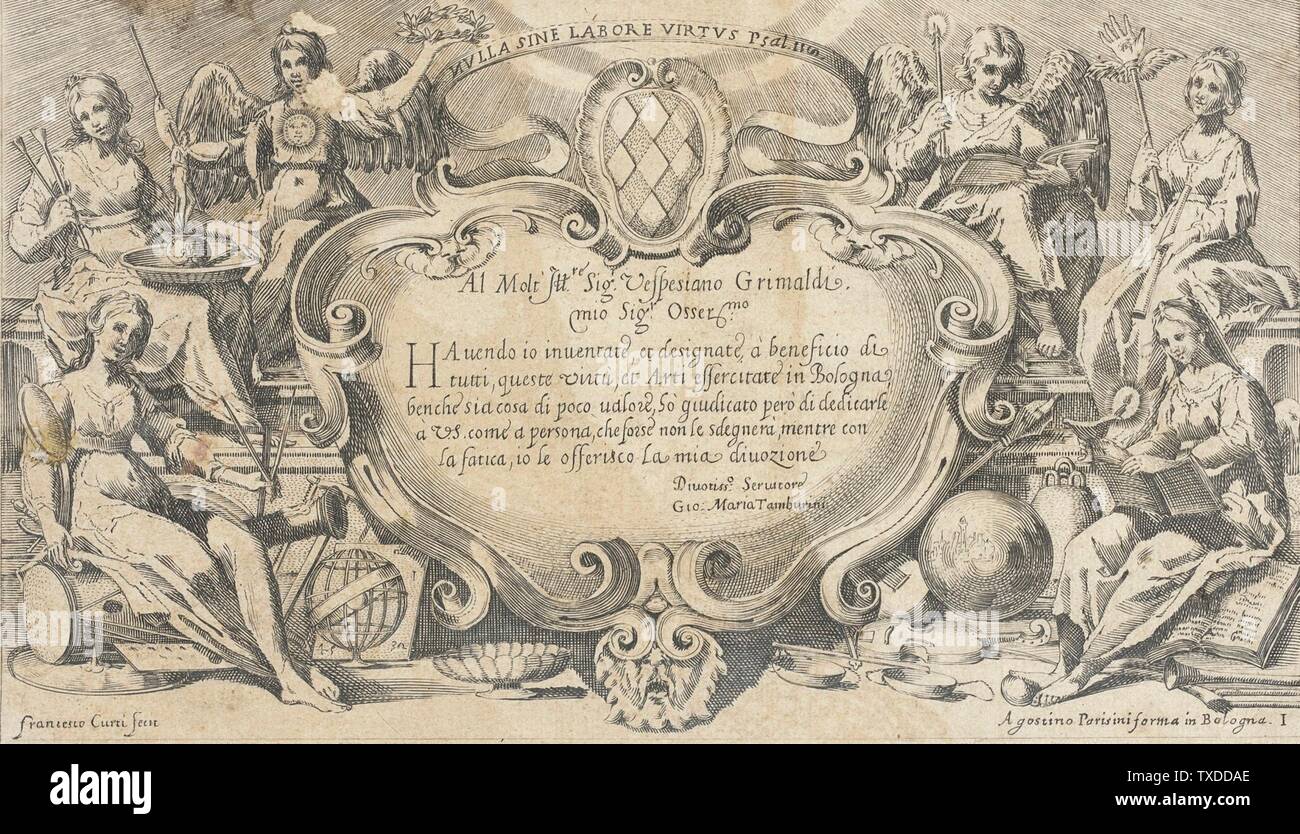 NVLLA SINE LABORE VIRTVS Psal. 118
Al Molt' Ill.re Sig.r Vespesiano Grimaldi.
mio Sig.r Osser.mo
HAuendo io inuentate, et designate, à beneficio di
tutti, queste virtù, et Arti essercitate in Bologna,
benche sia cosa di poco ualore, hò giudicato però di dedicarle
à VS. come a persona, che forse non le sdegnerà, mentre con
la fatica, io le offerisco la mia diuozione
Diuotiss.o Seruitore
Gio: Maria Tamburini
francesco Curti fecit
Agostino Parisini forma in Bologna. I
alamy
a
alamy stock photo
TXDDAE
www.alamy.com